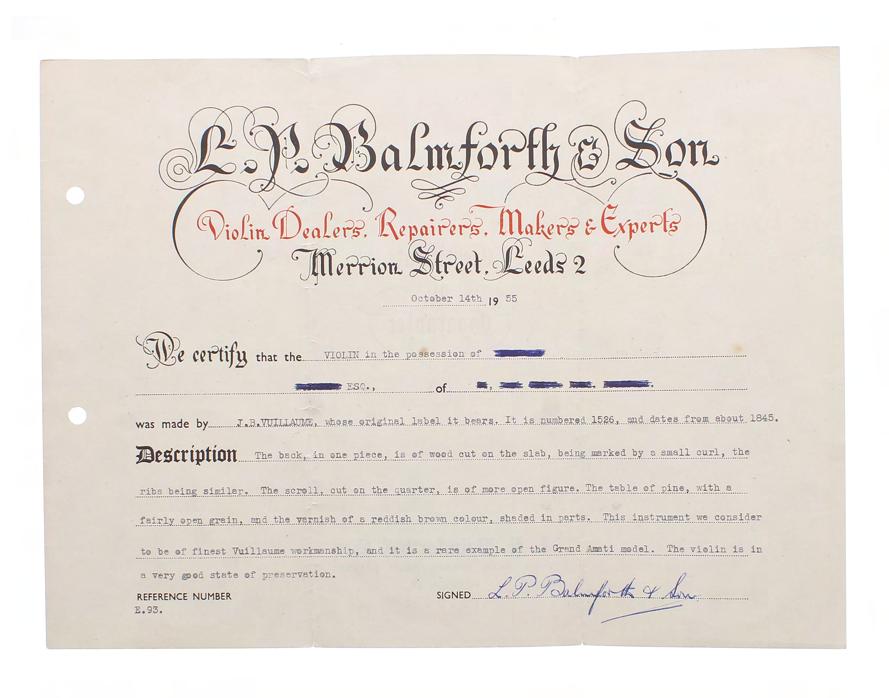 L. P. Balmforth & Son
Violin Dealers, Repairers, Makers & Experts
Merrion Street, Leeds 2
October 14th 19 55
We certify that the VIOLIN in the possession of
ESQ., of
was made by J.B.VUILLAUME, whose original label it bears. It is numbered 1526, and dates from about 1845.
Description The back, in one piece, is of wood cut on the slab, being marked by a small curl, the
ribs being similar. The scroll, cut on the quarter, is of more open figure. The table of pine, with a
fairly open grain, and the varnish of a reddish brown colour, shaded in parts. This instrument we consider
to be of finest Vuillaume workmanship, and it is a rare example of the Grand Amati model. The violin is in
a very good state of preservation.
REFERENCE NUMBER SIGNED L. P. Balmforth & Son
E.93.